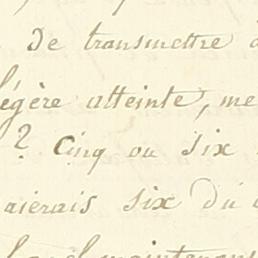 De transmettre
légère atteinte, me
? Cinq ou six
aierais six du
maintenant